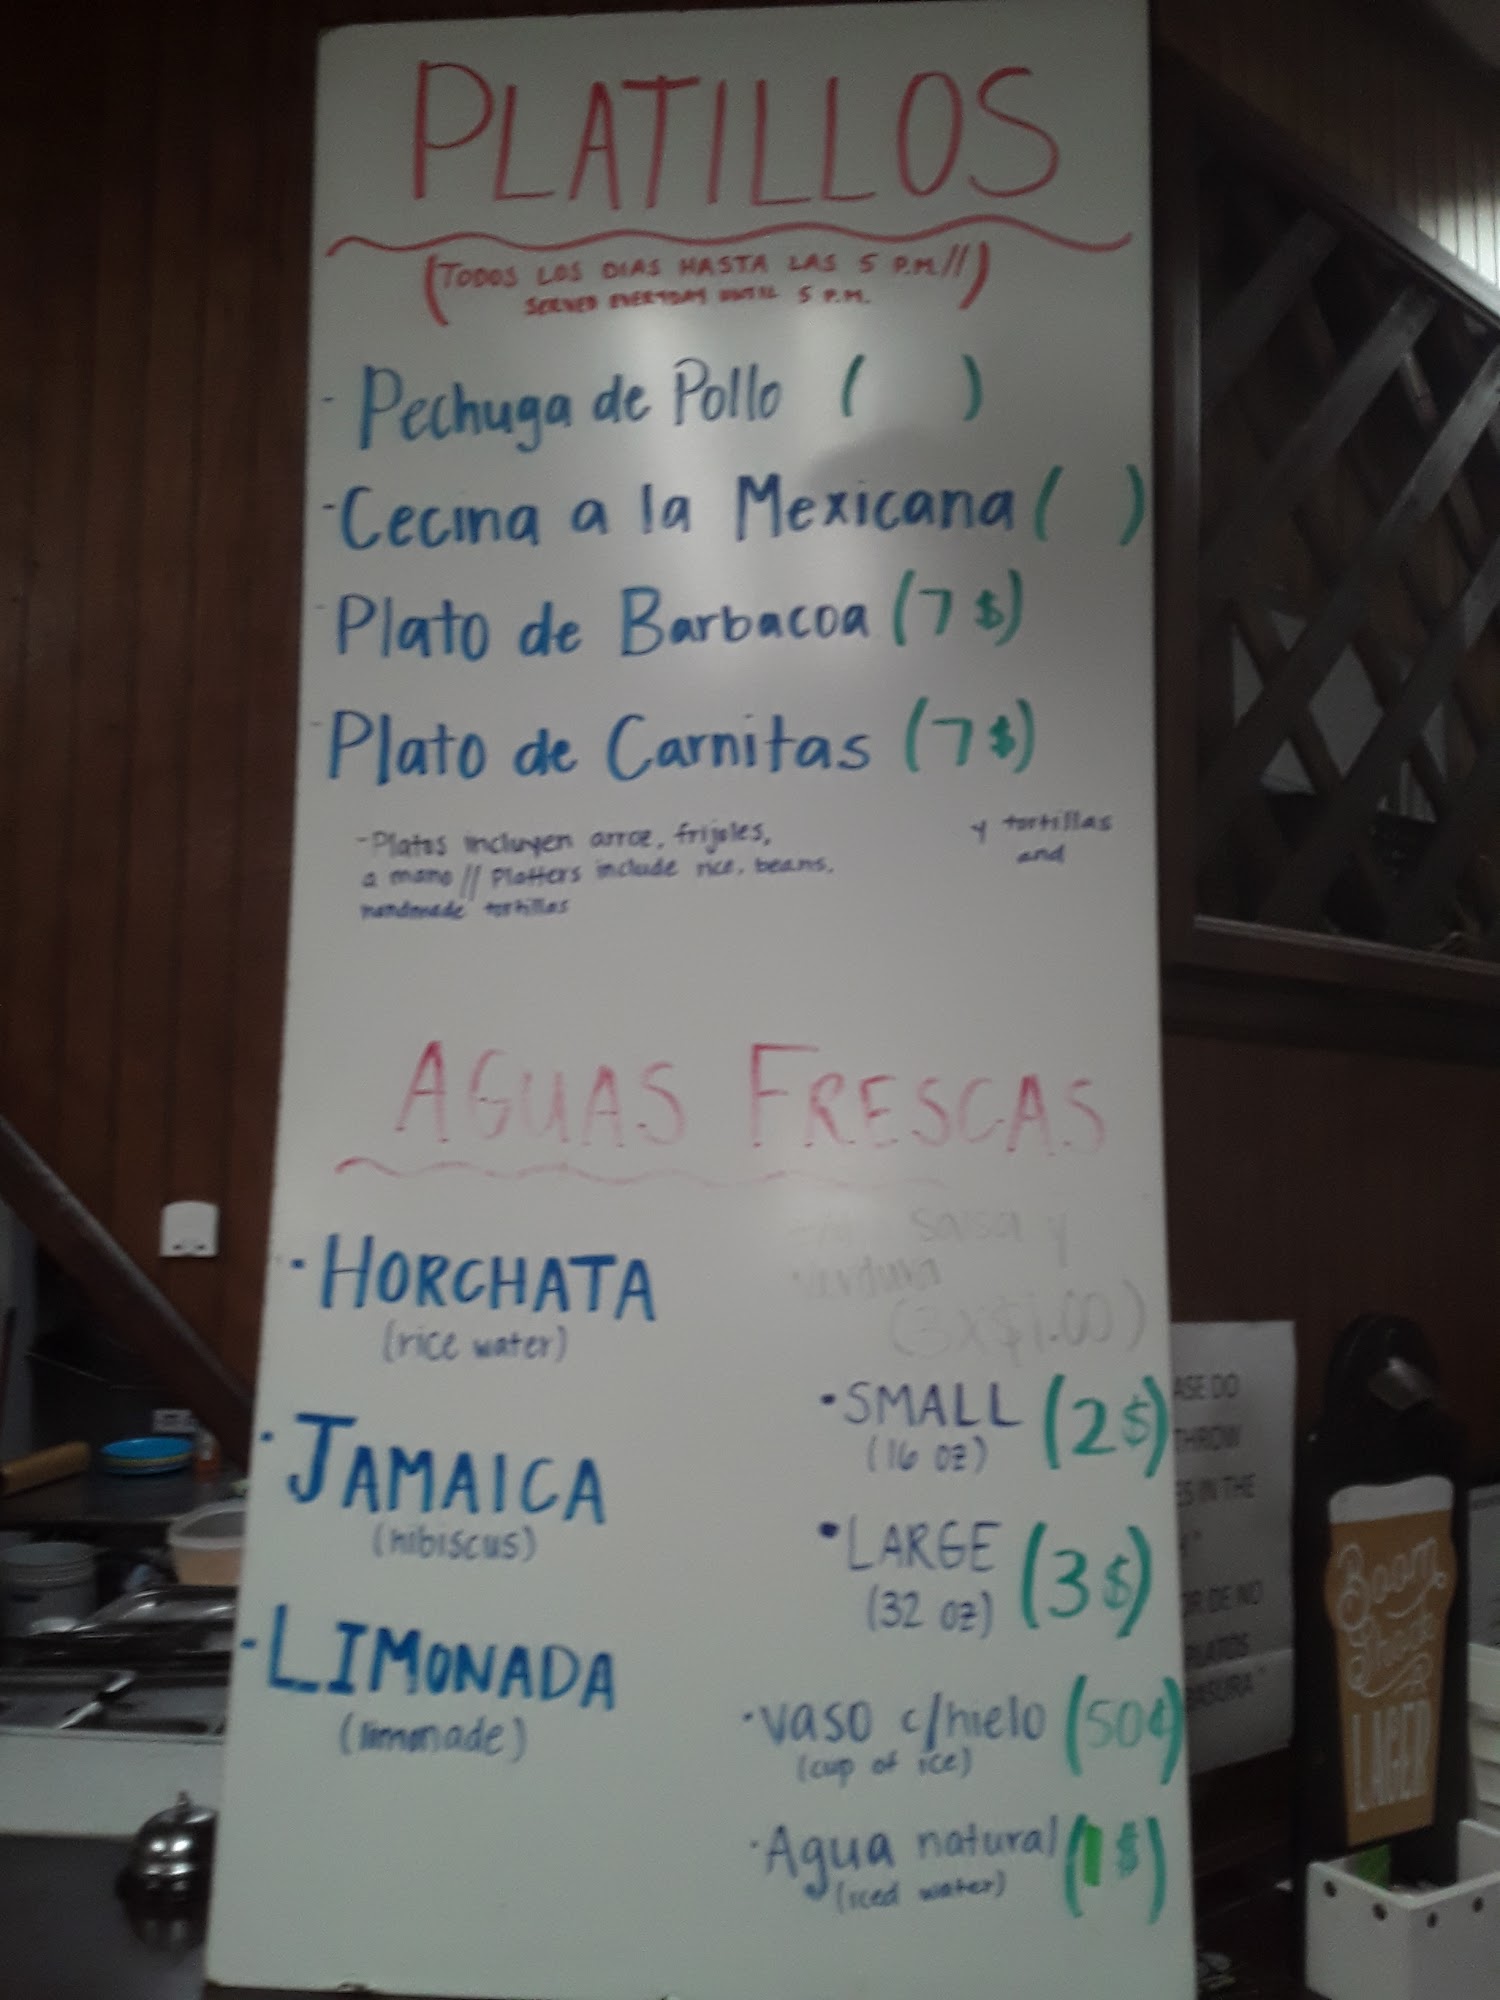 PLATILLOS
(TODOS LOS DIAS HASTA LAS 5 P.M.//
SERVED EVERYDAY UNTIL 5 P.M.)
- Pechuga de Pollo ( )
- Cecina a la Mexicana ( )
- Plato de Barbacoa (7 $)
- Plato de Carnitas (7 $)
- Platos incluyen arroz, frijoles, y tortillas
a mano // Platters include rice, beans, and
handmade tortillas
AGUAS FRESCAS
salsa y
verdura
$1.00)
· HORCHATA
(rice water)
· JAMAICA
(hibiscus)
- LIMONADA
(limonade)
· SMALL (2$)
(16 oz)
· LARGE (3$)
(32 oz)
· vaso c/hielo (50¢)
(cup of ice)
· Agua natural (1$)
(iced water)
ASE DO
THROW
ES IN THE
OR DE NO
PLATOS
BASURA"
Boom
Shack
LAGER